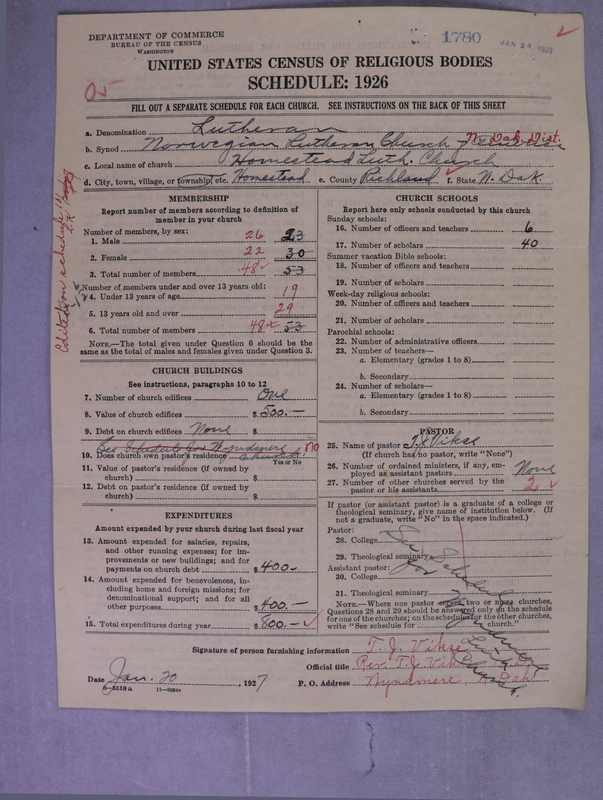 DEPARTMENT OF COMMERCE
BUREAU OF THE CENSUS
WASHINGTON
1780
JAN 24 1927
05
UNITED STATES CENSUS OF RELIGIOUS BODIES
SCHEDULE: 1926
FILL OUT A SEPARATE SCHEDULE FOR EACH CHURCH. SEE INSTRUCTIONS ON THE BACK OF THIS SHEET
a. Denomination Lutheran
b. Synod Norwegian Lutheran Church N. Dak. Dist.
c. Local name of church Homestead Luth. Church
d. City, town, village, or township, etc. Homestead e. County Richland f. State N. Dak.
Edited on schedule
MEMBERSHIP
Report number of members according to definition of member in your church
Number of members, by sex:
1. Male 26 23
2. Female 22 30
3. Total number of members 48 53
Number of members under and over 13 years old:
4. Under 13 years of age 19
5. 13 years old and over 29
6. Total number of members 48 53
NOTE.—The total given under Question 6 should be the same as the total of males and females given under Question 3.
CHURCH BUILDINGS
See instructions, paragraphs 10 to 12
7. Number of church edifices One
8. Value of church edifices $500.—
9. Debt on church edifices None $
See Schedule for Wyndmere church
10. Does church own pastor's residence? no
Yes or No
11. Value of pastor's residence (if owned by church) $
12. Debt on pastor's residence (if owned by church) $
EXPENDITURES
Amount expended by your church during last fiscal year
13. Amount expended for salaries, repairs, and other running expenses; for improvements or new buildings; and for payments on church debt $400.—
14. Amount expended for benevolences, including home and foreign missions; for denominational support; and for all other purposes $400.—
15. Total expenditures during year $800.—
CHURCH SCHOOLS
Report here only schools conducted by this church
Sunday schools:
16. Number of officers and teachers 6
17. Number of scholars 40
Summer vacation Bible schools:
18. Number of officers and teachers
19. Number of scholars
Week-day religious schools:
20. Number of officers and teachers
21. Number of scholars
Parochial schools:
22. Number of administrative officers
23. Number of teachers—
a. Elementary (grades 1 to 8)
b. Secondary
24. Number of scholars—
a. Elementary (grades 1 to 8)
b. Secondary
PASTOR
25. Name of pastor T. J. Vikse
(If church has no pastor, write "None")
26. Number of ordained ministers, if any, employed as assistant pastors None
27. Number of other churches served by the pastor or his assistants 2
If pastor (or assistant pastor) is a graduate of a college or theological seminary, give name of institution below. (If not a graduate, write "No" in the space indicated.)
Pastor:
28. College
29. Theological seminary
Assistant pastor:
30. College
31. Theological seminary
See Schedule for Wyndmere Luth. Church.
NOTE.—Where one pastor serves two or more churches, Questions 28 and 29 should be answered only on the schedule for one of the churches; on the schedules for the other churches, write "See schedule for church."
Signature of person furnishing information T. J. Vikse
Official title Rev. T. J. Vikse
Date Jan. 20, 1927 P. O. Address Wyndmere N. Dak
6—5518a 11—9064a